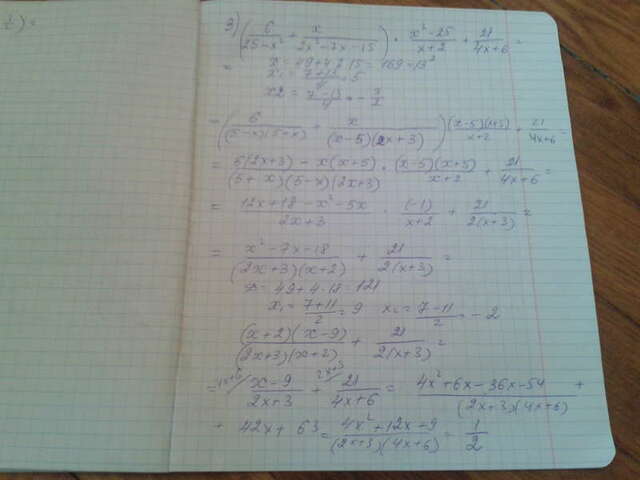 3) (6/(25-x²) + x/(2x²-7x-15)) · (x²-25)/(x+2) + 21/(4x+6) =
= D = 49+4·2·15 = 169 = 13²
x₁ = (7+13)/4 = 5
x2 = (7-13)/4 = -
= (6/((5-x)(5+x)) + x/((x-5)(2x+3))) (x-5)(x+5)/(x+2) + 21/(4x+6) =
= (5(2x+3) - x(x+5))/((5+x)(5-x)(2x+3)) · (x-5)(x+5)/(x+2) + 21/(4x+6) =
= (12x+18-x²-5x)/(2x+3) · (-1)/(x+2) + 21/(2(x+3)) =
= (x²-7x-18)/((2x+3)(x+2)) + 21/(2(x+3)) =
D = 49+4·18 = 121
x₁ = (7+11)/2 = 9 x₂ = (7-11)/2 = -2
(x+2)(x-9)/((2x+3)(x+2)) + 21/(2(x+3)) =
= 4x+6/ (x-9)/(2x+3) + 2x+3/ 21/(4x+6) = (4x²+6x-36x-54)/((2x+3)(4x+6)) +
+ 42x+63 = (4x²+12x+9)/((2x+3)(4x+6)) = 1/2